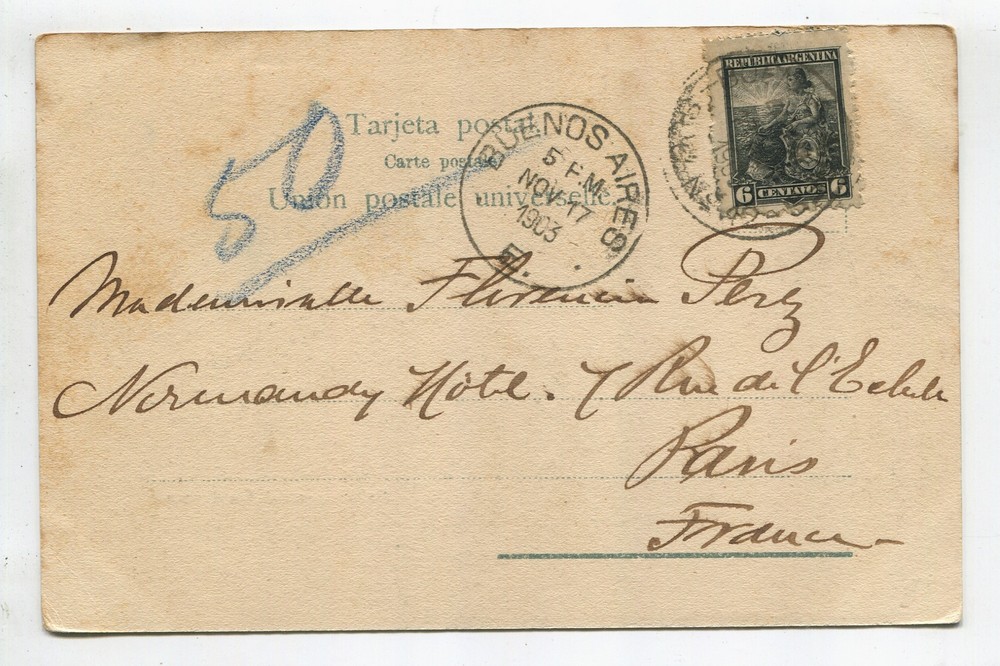 Tarjeta postal
Carte postale
Unión postale universelle.
50
BUENOS AIRES
5 P M
NOV 17
1903
REPÚBLICA ARGENTINA
6 CENTAVOS 6
Mademoiselle Florencia Perez
Normandy Hôtel. 7 Rue de l'Echelle
Paris
France